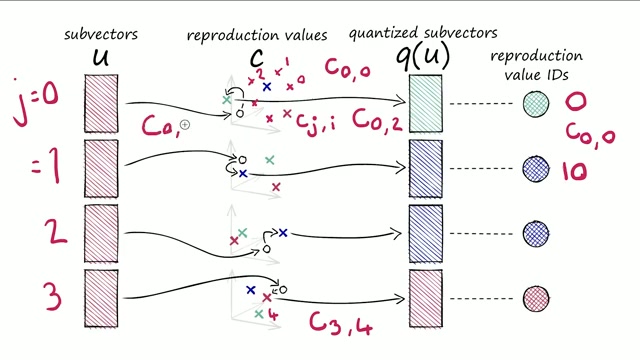 subvectors
u
reproduction values
c
quantized subvectors
q(u)
reproduction
value IDs
j=0
2
1
0
C0,0
Cj,i
C0,2
C0,
0
C0,0
=1
10
2
3
4
C3,4